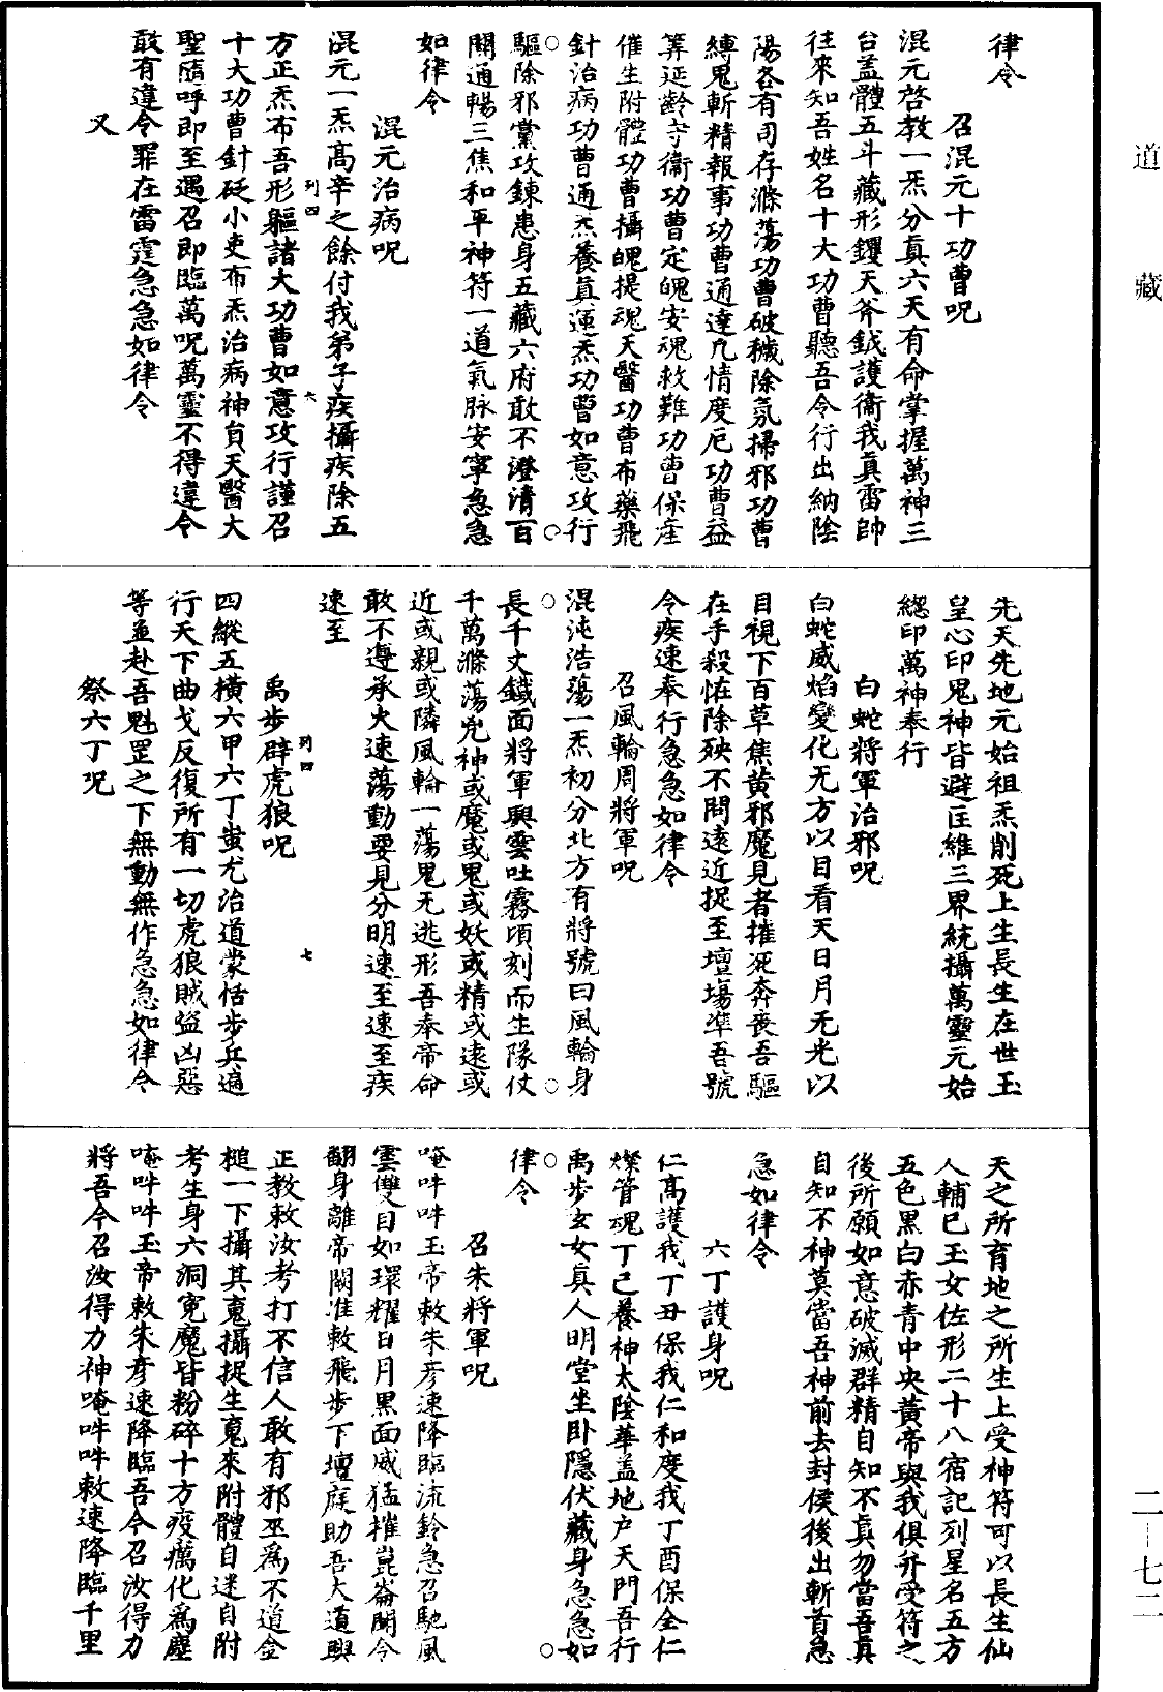 道藏
二—七二
律令
召混元十功曹呪
混元啓教一炁分真六天有命掌握萬神三
台盖體五斗藏形钁天斧鉞護衞我真雷帥
往來知吾姓名十大功曹聽吾令行出納陰
陽各有司存滌蕩功曹破穢除氛掃邪功曹
縛鬼斬精報事功曹通達凡情度厄功曹益
筭延齡守衞功曹定魄安魂救難功曹保產
催生附體功曹攝魄提魂天醫功曹布藥飛
針治病功曹通炁養真運炁功曹如意攻行
驅除邪黨攻鍊患身五藏六府敢不澄清百
關通暢三焦和平神符一道氣脉安寧急急
如律令
混元治病呪
混元一炁高辛之餘付我弟子疾攝疾除五
列四 六
方正炁布吾形軀諸大功曹如意攻行謹召
十大功曹針砭小吏布炁治病神貟天醫大
聖隨呼即至遇召即臨萬呪萬靈不得違令
敢有違令罪在雷霆急急如律令
又
先天先地元始祖炁削死上生長生在世玉
皇心印鬼神皆避匡維三界統攝萬靈元始
緫印萬神奉行
白蛇將軍治邪呪
白蛇威焰變化无方以目看天日月无光以
目視下百草焦黄邪魔見者摧死奔喪吾驅
在手殺怪除殃不問遠近捉至壇場準吾號
令疾速奉行急急如律令
召風輪周將軍呪
混沌浩蕩一炁初分北方有將號曰風輪身
長千丈鐵面將軍興雲吐霧頃刻而生隊仗
千萬滌蕩兇神或魔或鬼或妖或精或遠或
近或親或隣風輪一蕩鬼无逃形吾奉帝命
敢不遵承火速蕩動要見分明速至速至疾
速至
禹步辟虎狼呪
列四 七
四縱五橫六甲六丁蚩尤治道蒙恬步兵遍
行天下曲戈反復所有一切虎狼賊盜凶惡
等並赴吾魁罡之下無動無作急急如律令
祭六丁呪
天之所育地之所生上受神符可以長生仙
人輔巳玉女佐形二十八宿記列星名五方
五色黑白赤青中央黃帝與我俱并受符之
後所願如意破滅群精自知不真勿當吾真
自知不神莫當吾神前去封侯後出斬首急
急如律令
六丁護身呪
仁高護我丁丑保我仁和度我丁酉保全仁
燦管魂丁巳養神太陰華盖地户天門吾行
禹步玄女真人明堂坐卧隱伏藏身急急如
律令
召朱將軍呪
唵吽吽玉帝敕朱彥速降臨流鈴急召馳風
雲雙目如環耀日月黑面威猛摧崑崙聞令
翻身離帝闕准敕飛步下壇庭助吾大道興
正教敕汝考打不信人敢有邪巫爲不道金
槌一下攝其䰟攝捉生䰟來附體自迷自附
考生身六洞寃魔皆粉碎十方疫癘化爲塵
唵吽吽玉帝敕朱彥速降臨吾今召汝得力
將吾今召汝得力神唵吽吽敕速降臨千里